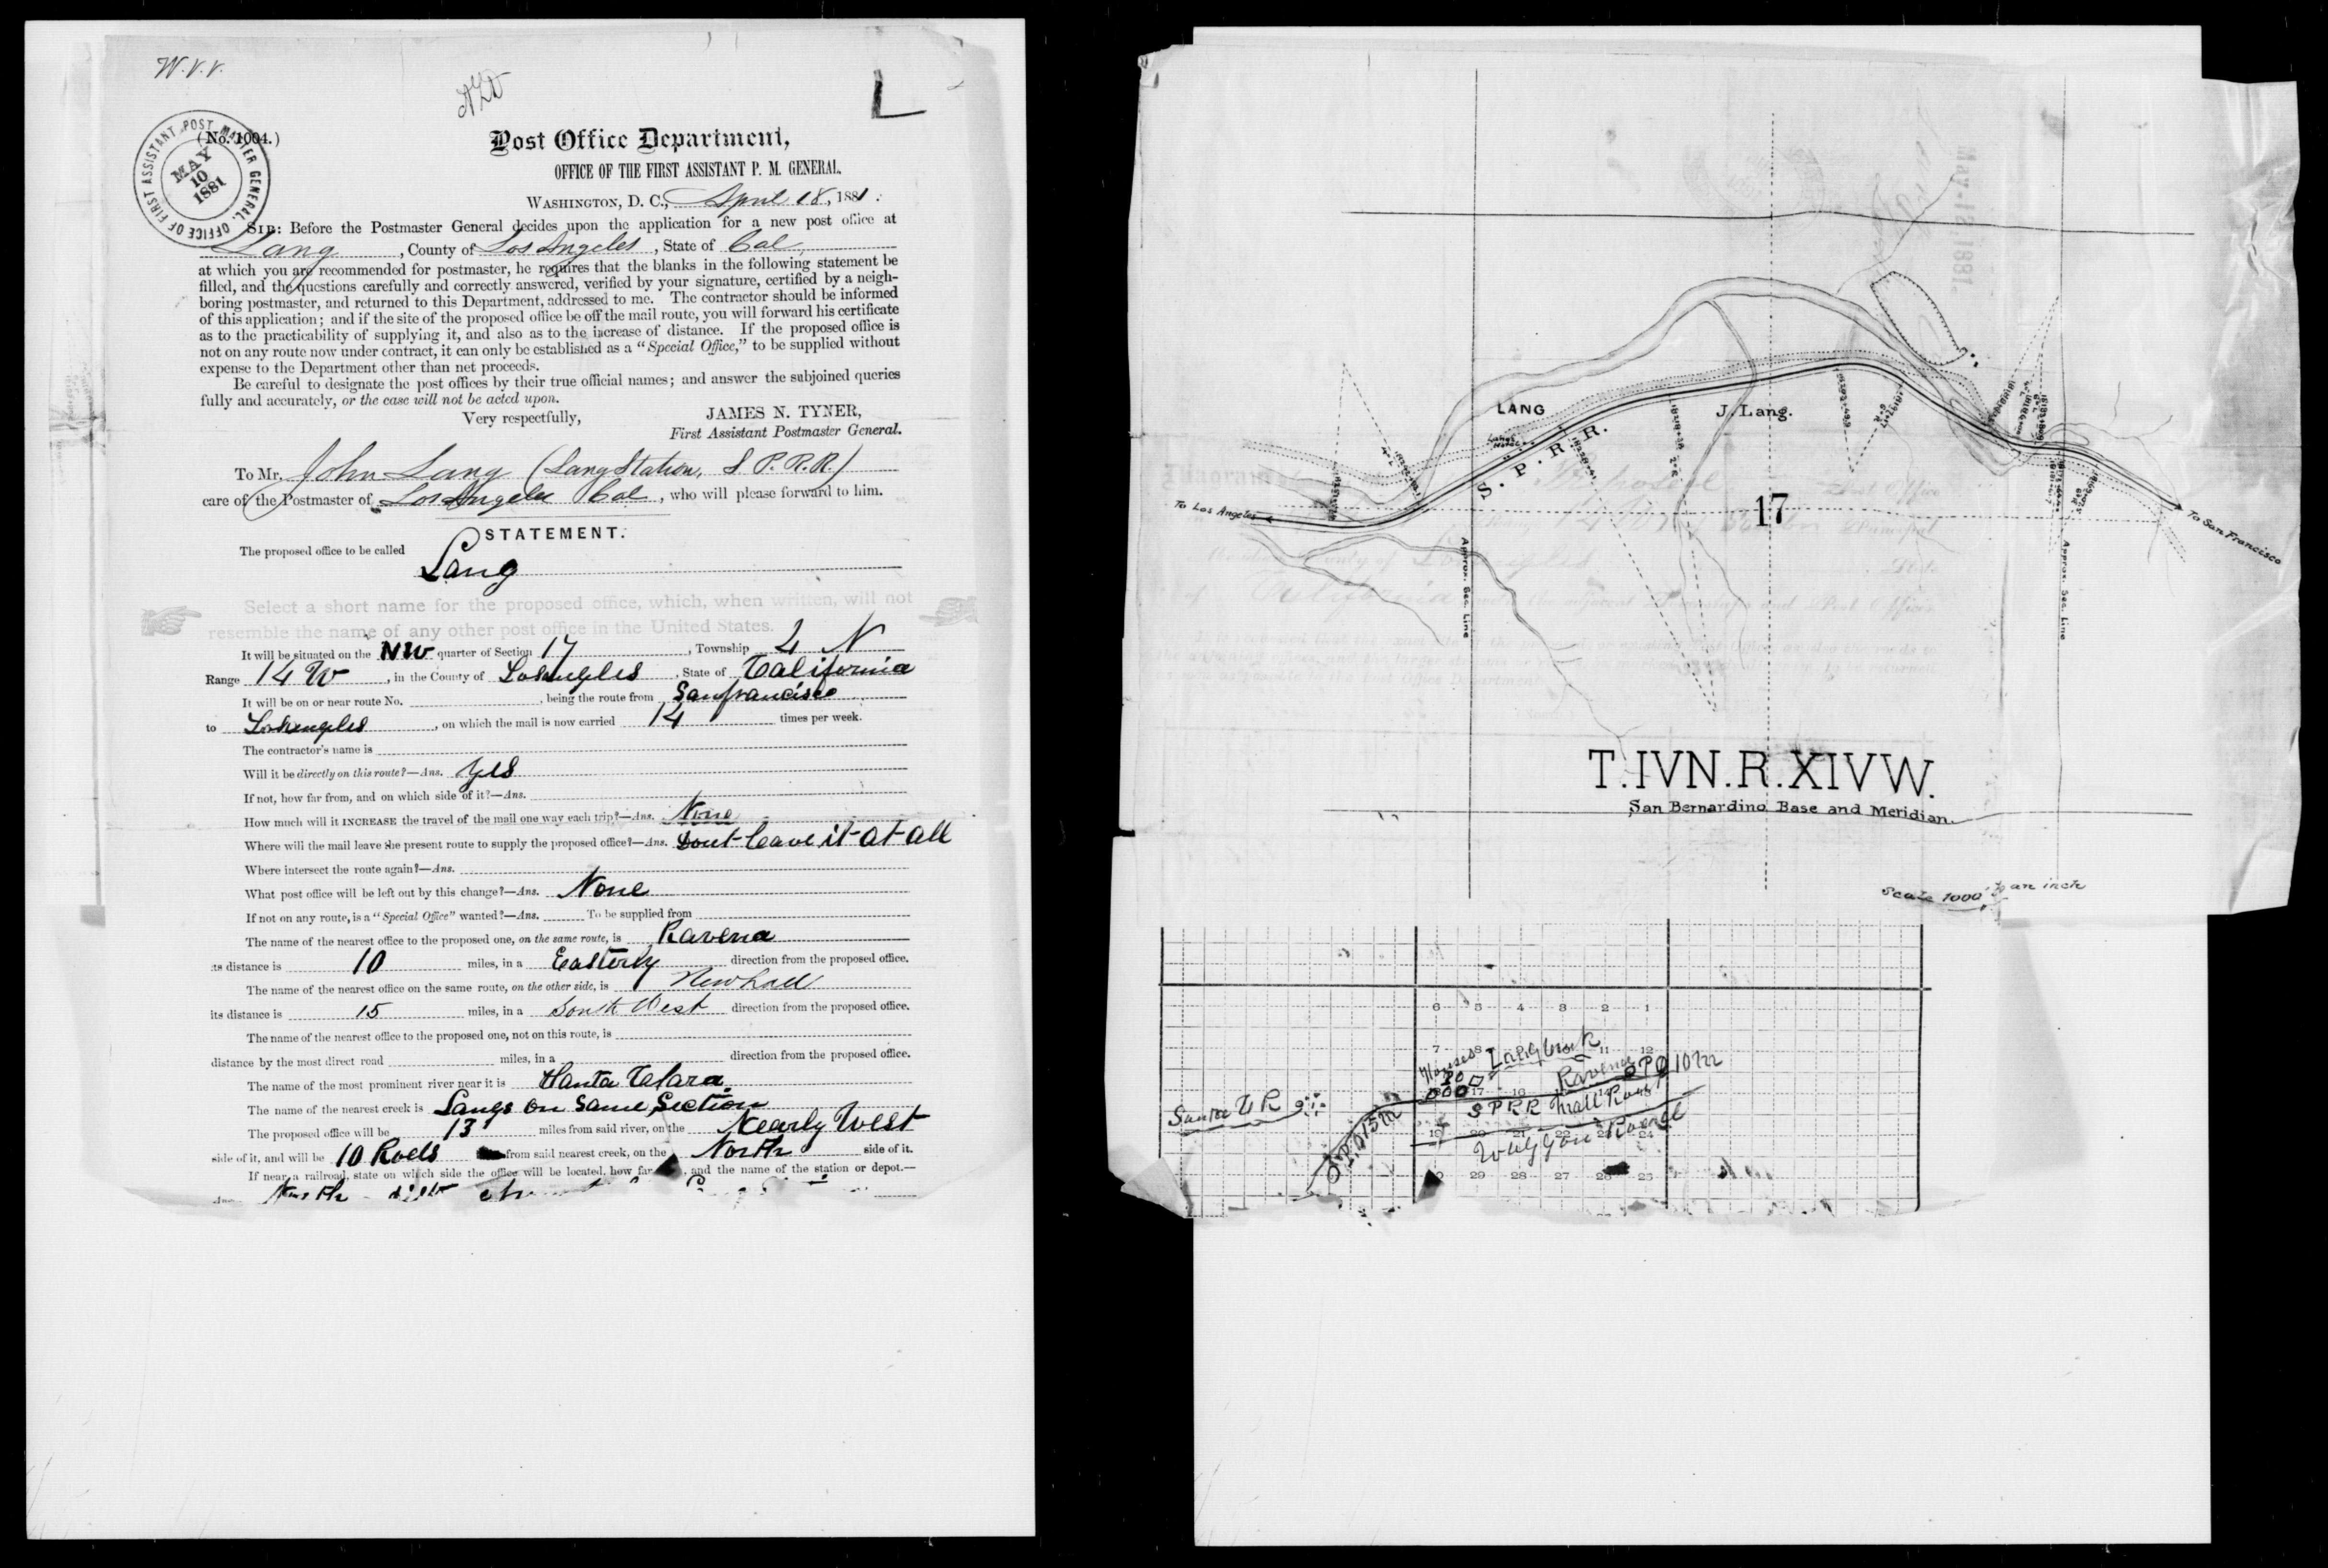 W.V.V.
L
(No. 1004.)
OFFICE OF FIRST ASSISTANT POST MASTER GENERAL.
MAY
10
1881
Post Office Department,
OFFICE OF THE FIRST ASSISTANT P. M. GENERAL.
WASHINGTON, D. C., April 18, 1881.
SIR: Before the Postmaster General decides upon the application for a new post office at
Lang, County of Los Angeles, State of Cal,
at which you are recommended for postmaster, he requires that the blanks in the following statement be
filled, and the questions carefully and correctly answered, verified by your signature, certified by a neigh-
boring postmaster, and returned to this Department, addressed to me. The contractor should be informed
of this application; and if the site of the proposed office be off the mail route, you will forward his certificate
as to the practicability of supplying it, and also as to the increase of distance. If the proposed office is
not on any route now under contract, it can only be established as a "Special Office," to be supplied without
expense to the Department other than net proceeds.
Be careful to designate the post offices by their true official names; and answer the subjoined queries
fully and accurately, or the case will not be acted upon.
Very respectfully,
JAMES N. TYNER,
First Assistant Postmaster General.
To Mr. John Lang (Lang Station, S. P. R.R.)
care of the Postmaster of Los Angeles Cal, who will please forward to him.
STATEMENT.
The proposed office to be called Lang
Select a short name for the proposed office, which, when written, will not
resemble the name of any other post office in the United States.
It will be situated on the NW quarter of Section 17, Township 4 N
Range 14 W, in the County of Losangles, State of California
It will be on or near route No. , being the route from Sanfrancisco
to Losangles, on which the mail is now carried 14 times per week.
The contractor's name is
Will it be directly on this route?—Ans. Yes
If not, how far from, and on which side of it?—Ans.
How much will it INCREASE the travel of the mail one way each trip?—Ans. None
Where will the mail leave the present route to supply the proposed office?—Ans. Dont leave it at all
Where intersect the route again?—Ans.
What post office will be left out by this change?—Ans. None
If not on any route, is a "Special Office" wanted?—Ans. To be supplied from
The name of the nearest office to the proposed one, on the same route, is Ravena
its distance is 10 miles, in a Easterly direction from the proposed office.
The name of the nearest office on the same route, on the other side, is Newhall
its distance is 15 miles, in a South West direction from the proposed office.
The name of the nearest office to the proposed one, not on this route, is
distance by the most direct road miles, in a direction from the proposed office.
The name of the most prominent river near it is Santa Clara
The name of the nearest creek is Langs on Same Section
The proposed office will be 13 miles from said river, on the Nearly West
side of it, and will be 10 Rods from said nearest creek, on the North side of it.
If near a railroad, state on which side the office will be located, how far , and the name of the station or depot.—
Ans. North side
LANG
Langs Hotel
J. Lang.
S. P. R. R.
17
To Los Angeles
To San Francisco
Approx. Sec. Line
Approx. Sec. Line
T.IVN.R.XIVW.
San Bernardino Base and Meridian.
Scale 1000' to an inch
6 5 4 3 2 1
7 8 11 12
Houses Lang Creek
PO
Ravena PO 10 m
17 16
Santa C R
S P R R Mail Road
19 20 21 22 23 24
Waggon Road
P.O. 15 m
29 28 27 26 25